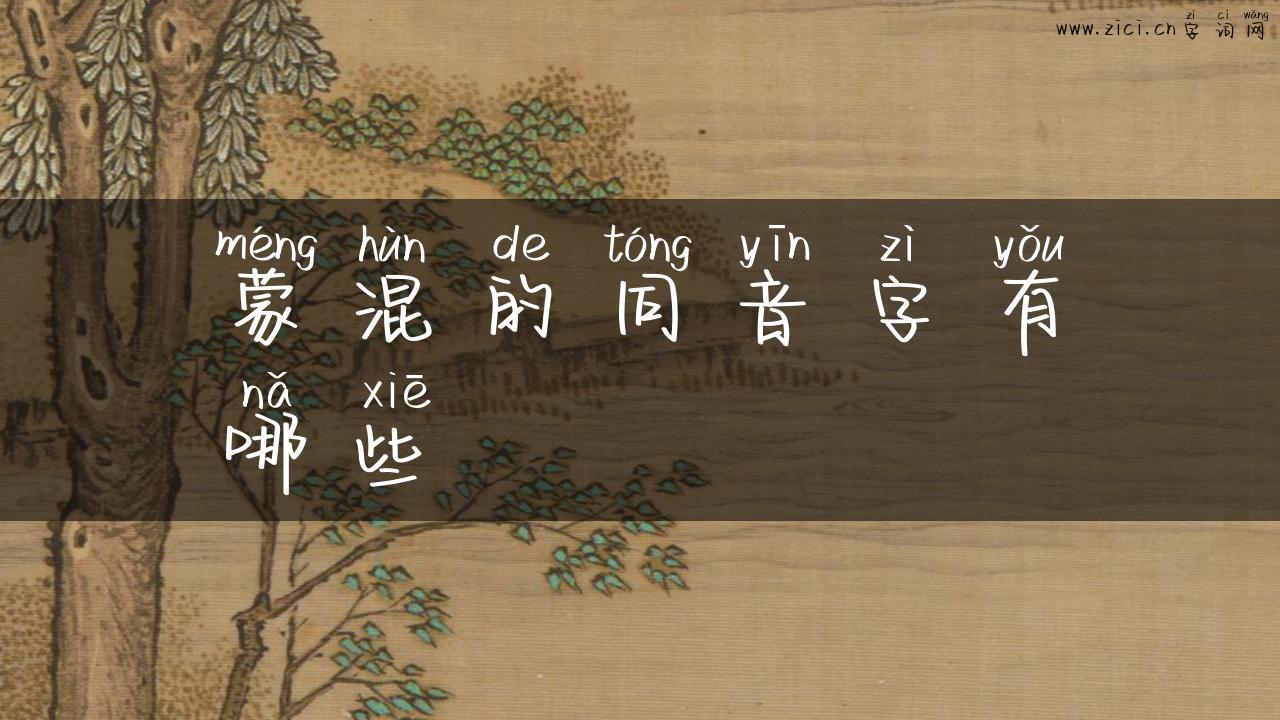 zì cí wǎng
www.zici.cn 字词网
méng hùn de tóng yīn zì yǒu
蒙混的同音字有
nǎ xiē
哪些